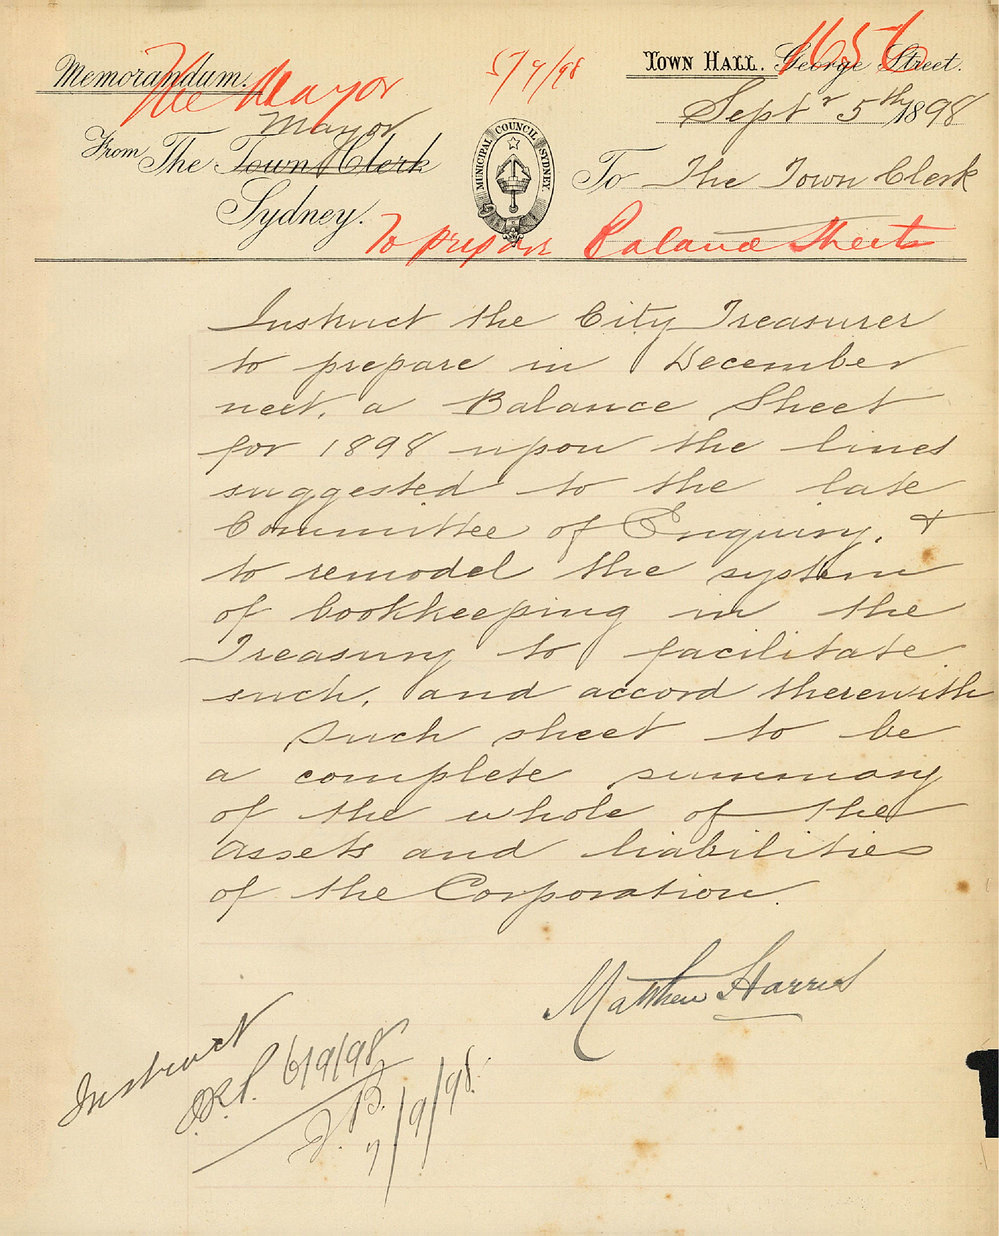 Memorandum.
The Mayor
5/9/98
1656
TOWN HALL. George Street.
Septr 5th 1898
Mayor
From The Town Clerk
Sydney.
MUNICIPAL COUNCIL SYDNEY.
To The Town Clerk
To prepare Balance Sheets
Instruct the City Treasurer
to prepare in December
next, a Balance Sheet
for 1898 upon the lines
suggested to the late
Committee of Enquiry, &
to remodel the system
of bookkeeping in the
Treasury to facilitate
such, and accord therewith
Such sheet to be
a complete summary
of the whole of the
assets and liabilities
of the Corporation.
Matthew Harris
Instruct
6/9/98
7/9/98.